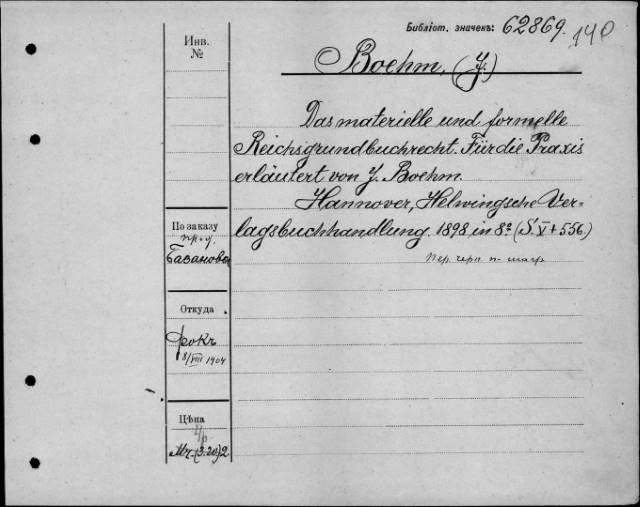 Библіот. значекъ: 62869. 140
Инв.
№
Boehm, (J.)
Das materielle und formelle
Reichsgrundbuchrecht. Für die Praxis
erläutert von J. Boehm.
Hannover, Helwingsche Ver-
lagsbuchhandlung 1898, in 8º (S. V + 556.)
По заказу
пр.-д.
Базанова
Пер. черн.
Откуда
Рокъ
8/VIII 1904
Цѣна
4р
Мк. (3.20) 2